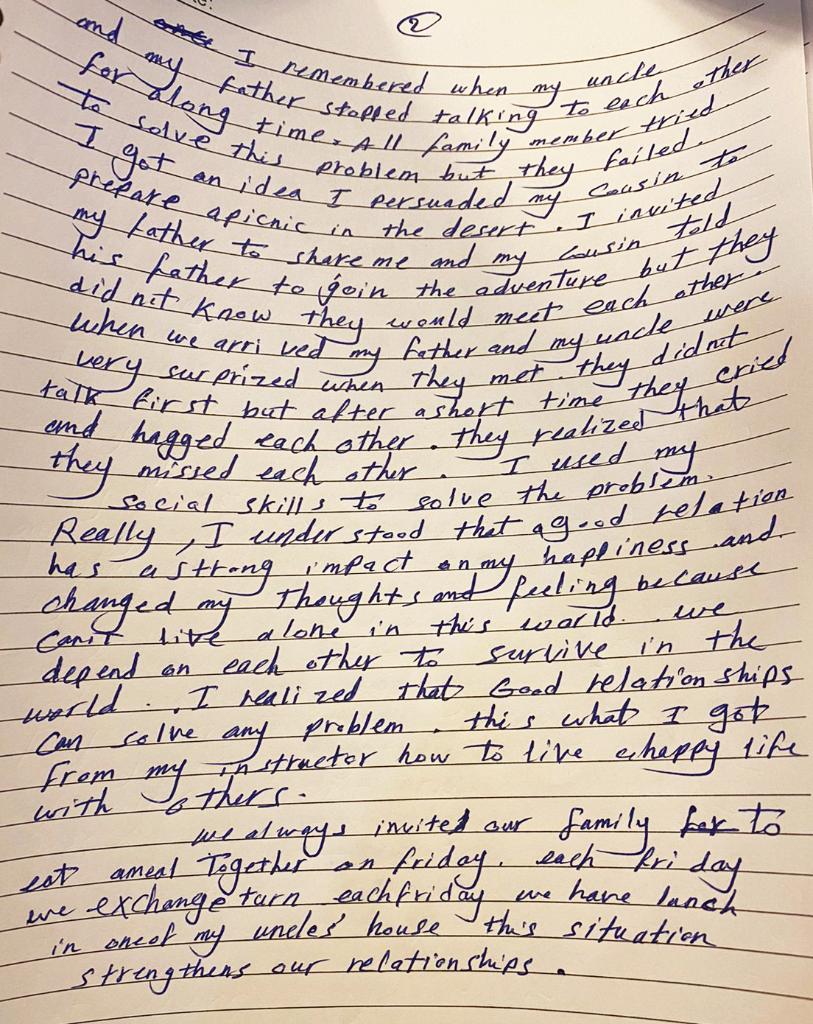 2
I remembered when my uncle
and my father stopped talking to each other
for along time. All family member tried
to solve this problem but they failed.
I got an idea I persuaded my cousin to
prepare apicnic in the desert. I invited
my father to share me and my cousin told
his father to goin the adventure but they
did nit know they would meet each other.
When we arri ved my father and my uncle were
very surprized when they met. they didnit
talk first but after ashort time they cried
and hagged each other. they realized that
they missed each other. I used my
social skills to solve the problem.
Really, I under stood that agood relation
has astrong impact on my happiness and
changed my thoughts and feeling because
can't live alone in this world. we
depend on each other to survive in the
world. I reali zed that Good relation ships
Can solve any problem. this what I got
From my instructor how to live ahappy life
with others.
we always invited our family for to
eat ameal Together on friday. each fri day
we exchange turn eachfriday we have lunch
in oneof my uncles' house this situation
strengthens our relationships.